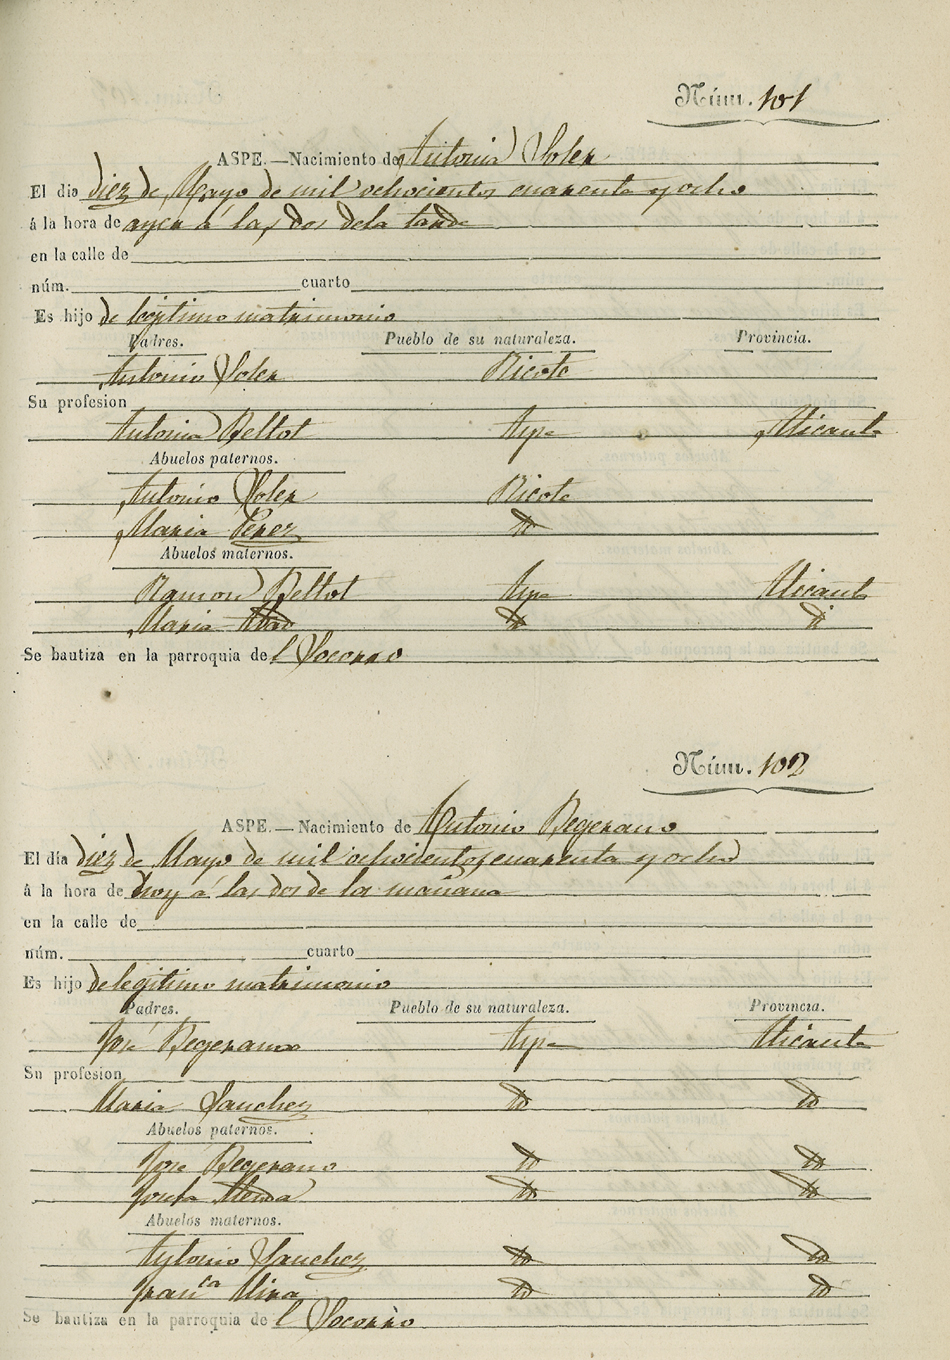 Núm. 101
ASPE.—Nacimiento de Antonia Soler
El día diez de Mayo de mil ochocientos cuarenta y ocho
á la hora de ayer á las dos de la tarde
en la calle de
núm. cuarto
Es hijo de legitimo matrimonio
Padres. Pueblo de su naturaleza. Provincia.
Antonio Soler Ricote
Su profesion
Antonia Beltot Aspe Alicante
Abuelos paternos.
Antonio Soler Ricote
Maria Perez id
Abuelos maternos.
Ramon Beltot Aspe Alicante
Maria Abad id id
Se bautiza en la parroquia del Socorro
Núm. 102
ASPE.—Nacimiento de Antonio Begerano
El día diez de Mayo de mil ochocientos cuarenta y ocho
á la hora de hoy á las dos de la mañana
en la calle de
núm. cuarto
Es hijo de legitimo matrimonio
Padres. Pueblo de su naturaleza. Provincia.
José Begerano Aspe Alicante
Su profesion
Maria Sanchez id id
Abuelos paternos.
José Begerano id id
Josefa id id
Abuelos maternos.
Antonio Sanchez id id
Fran.ca Mira id id
Se bautiza en la parroquia del Socorro